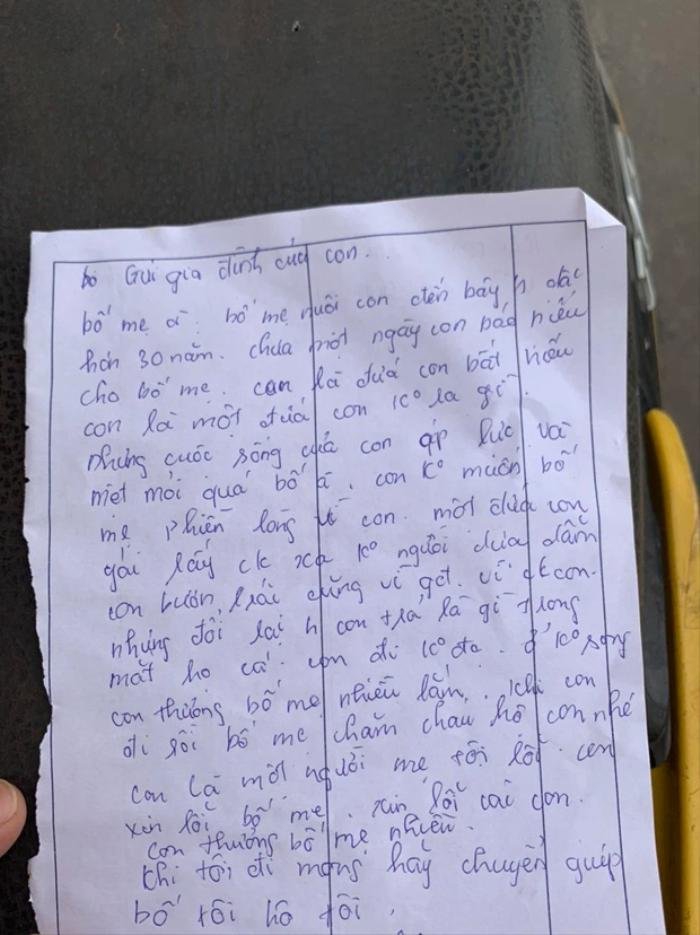 bỏ Gửi gia đình của con.
bố mẹ à. bố mẹ nuôi con đến bây h đã
hơn 30 năm. chưa một ngày con báo hiếu
cho bố mẹ. con là đứa con bất hiếu
con là một đứa con k° ra gì.
nhưng cuộc sống của con áp lực và
mệt mỏi quá bố ạ. con k° muốn bố
mẹ phiền lòng về con. một đứa con
gái lấy ck xa k° người đưa đón
con buôn trái cũng vì gđ. vì ck con.
nhưng đổi lại h con trả là gì trong
mắt họ cả. con đi k° đc. ở k° song
con thương bố mẹ nhiều lắm. khi con
đi rồi bố mẹ chăm cháu hộ con nhé
con là một người mẹ tội lỗi. con
xin lỗi bố mẹ. xin lỗi các con.
con thương bố mẹ nhiều.
khi tôi đi mong hãy chuyển giúp
bố tôi hộ tôi.